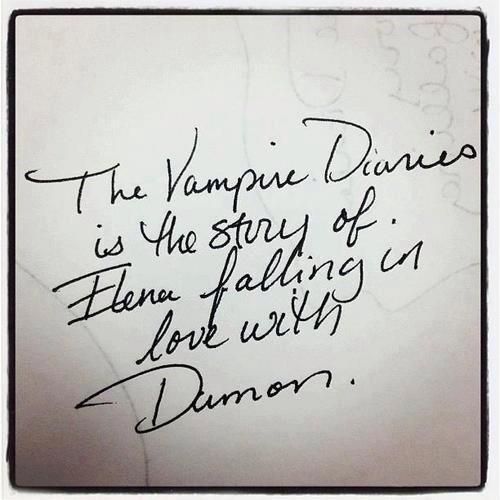 The Vampire Diaries
is the story of.
Elena falling in
love with
Damon.